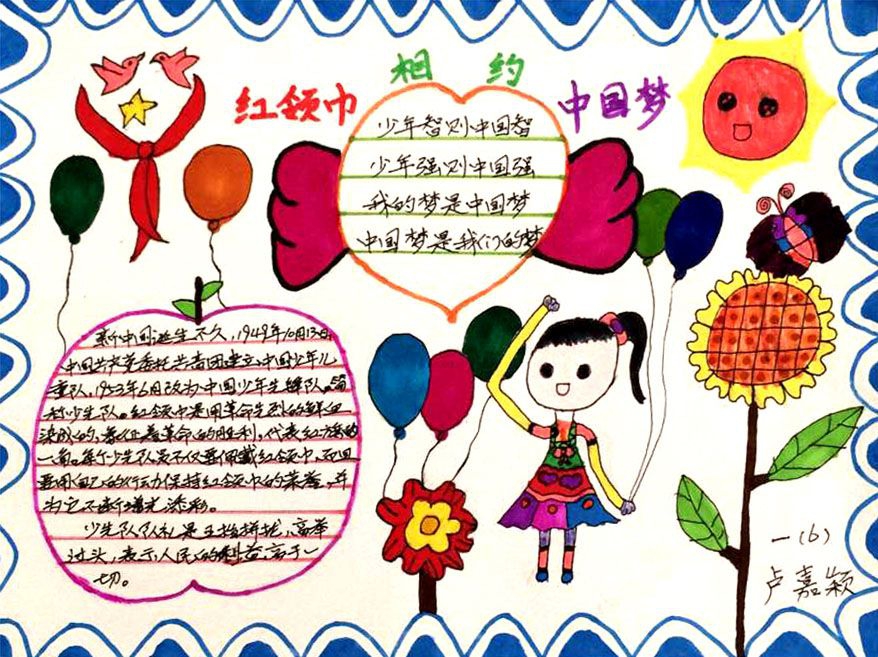 红领巾 相 约 中国梦
少年智则中国智
少年强则中国强
我的梦是中国梦
中国梦是我们的梦
新中国诞生不久，1949年10月13日，
中国共产党委托共青团建立中国少年儿
童队，1953年6月改为中国少年先锋队。简
称少先队。红领巾是用革命先烈的鲜血
染成的，象征着革命的胜利，代表红旗的
一角。每个少先队员不仅要佩戴红领巾，而且
要用自己的行动保持红领巾的荣誉，并
为它不断增光添彩。
少先队队礼是五指拼拢，高举
过头，表示人民的利益高于一
切。
一（6）
卢嘉颖